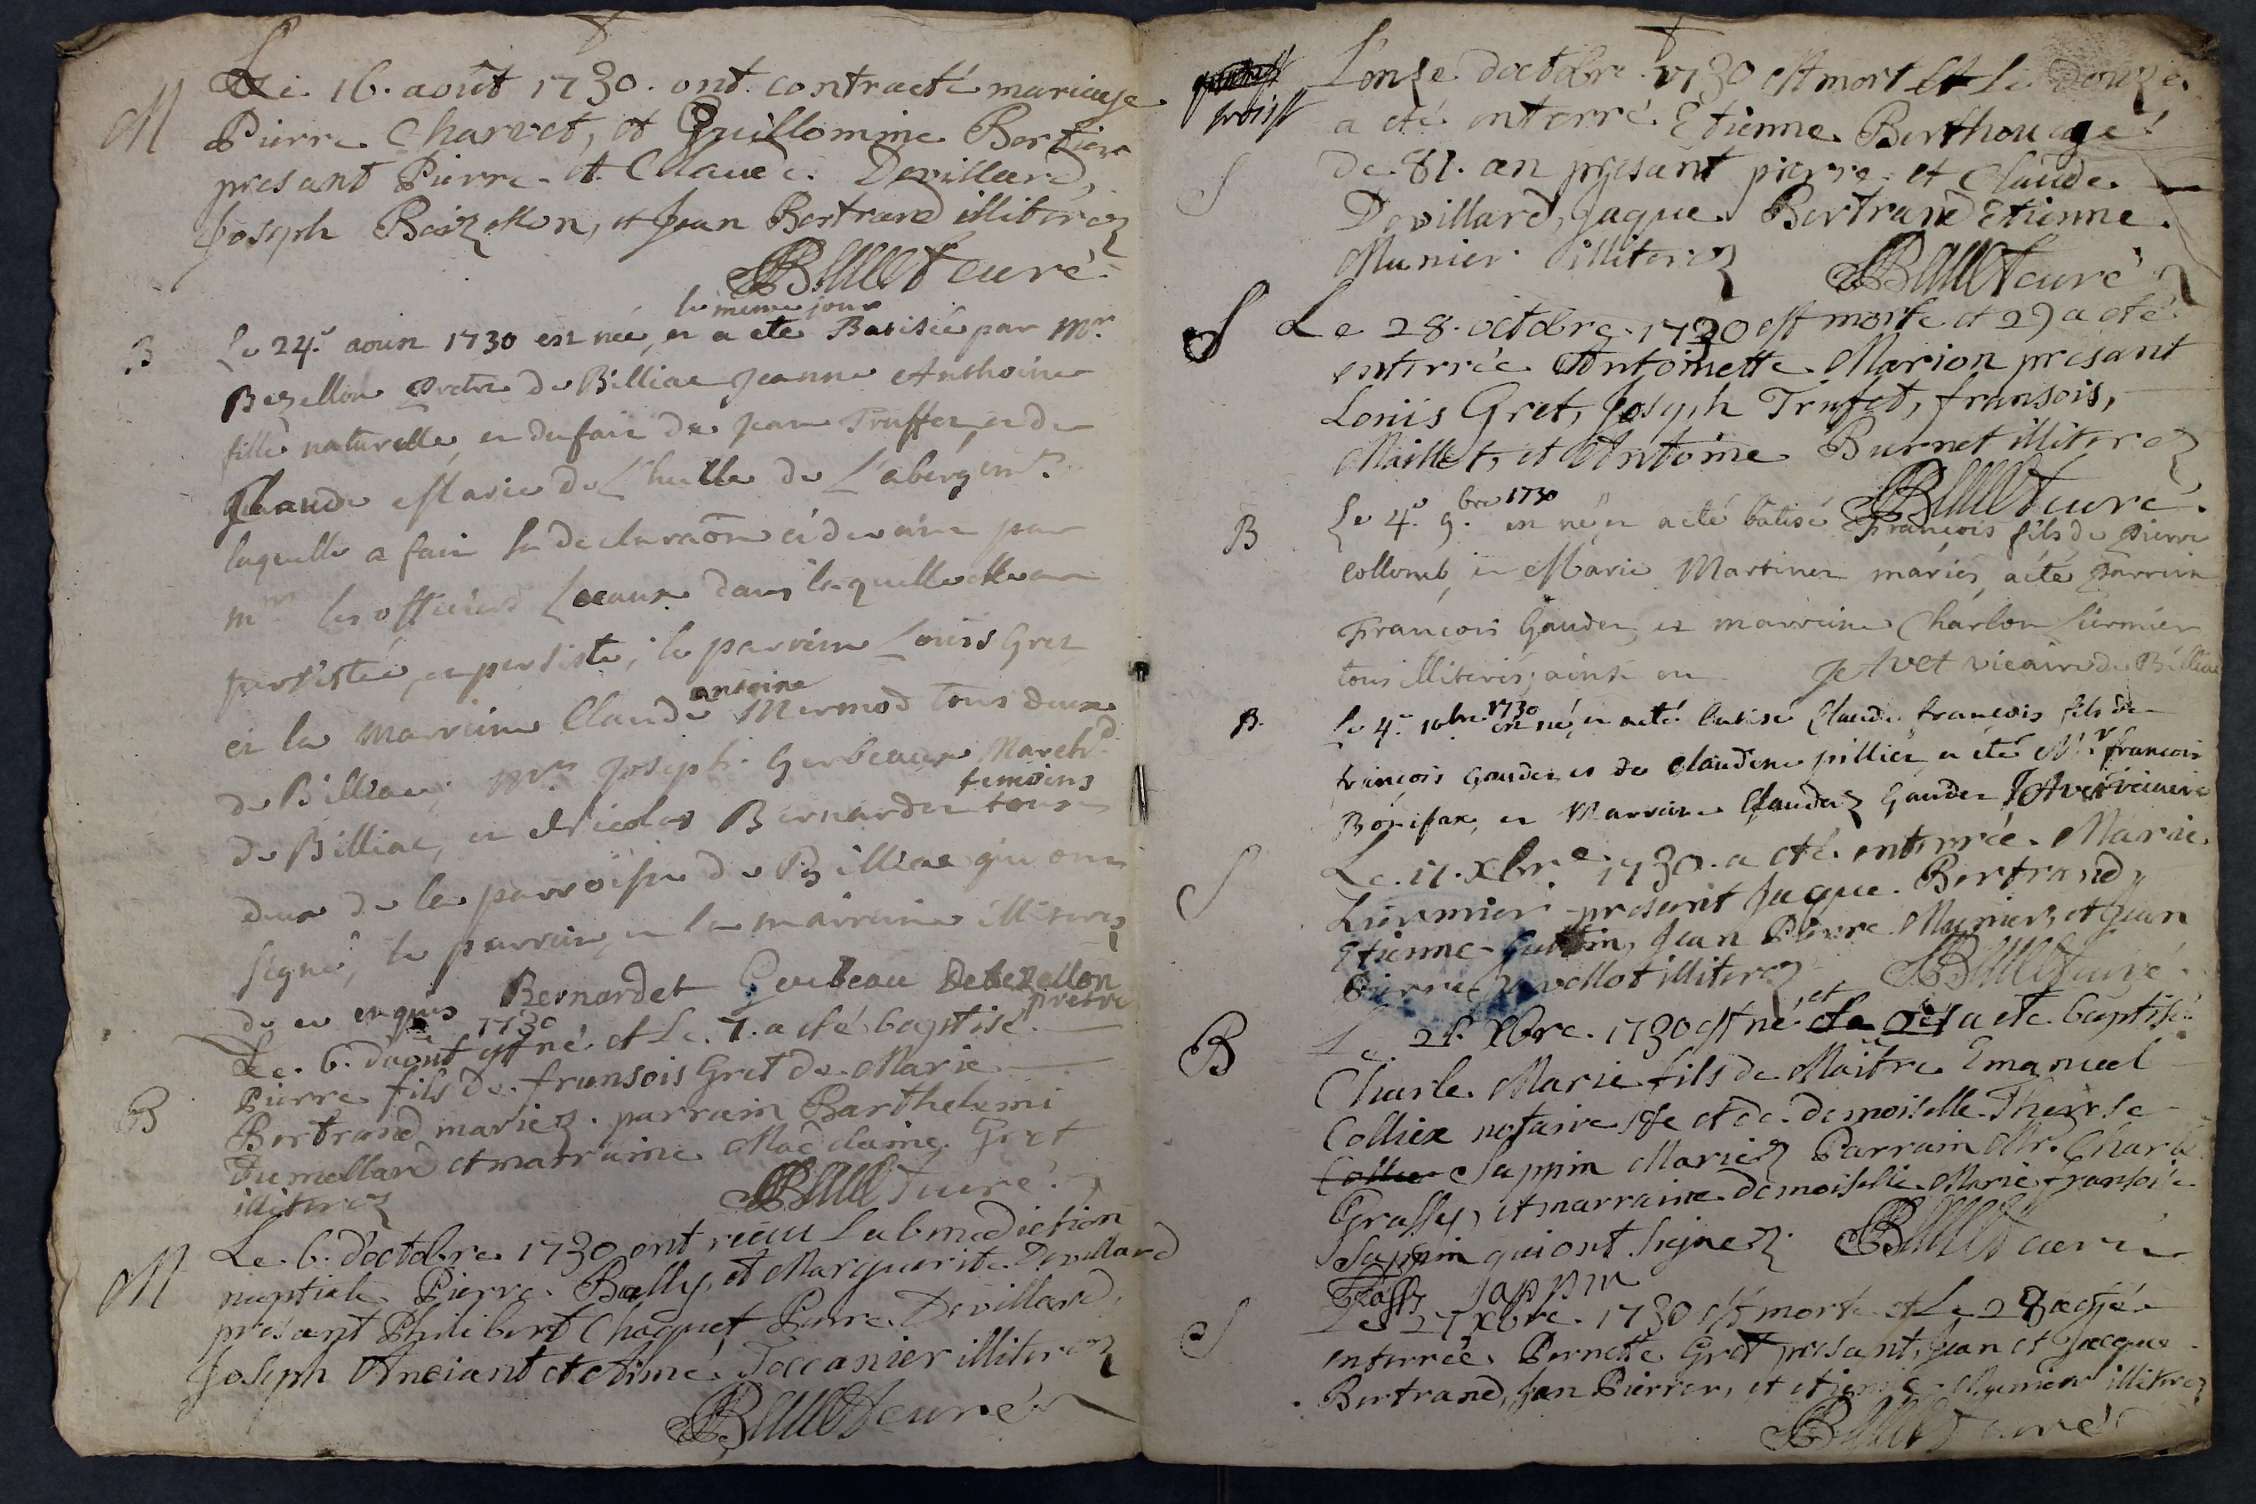 M
Le 16. août 1730. ont contracté mariage
Pierre Charvet, et Guillomine Bertier
presant Pierre et Claude Devillard,
Joseph et Jean Bertrand illiterez
curé
B
le meme jour
Le 24e aoust 1730 est née, et a eté Batisée par Mr
Bezellon Pretre de Billiac Jeanne Anthoine
fille naturelle, et du fait de Jean Truffet, et de
Claude Marie de L'hulle de L'abergemt
laquelle a fait sa declaraõn cidevant par
mrs les officiers Locaux dans laquelle elle a
persistée, et persiste, le parrein Louis Gret
antoine
et la marreine Claude Mermod tous deux
de Billiac; Mrs Joseph Gerbeaux Marchd
temoins
de Billiac, et Nicolas Bernardet tous
deux de la parroisse de Billiac qui ont
signé, le parrein, et la marreine illiteres
de ce enquis Bernardet Gerbeau Debezellon
pretre
B
1730
Le 6. daout est né et Le 7. a eté baptisé
Pierre fils de fransois Gret de Marie
Bertrand mariez. parrain Barthelemi
Fumellard et marraine Madelaine Gret
illiterez curé
M
Le 6. d'octobre 1730 ont recu La benediction
nuptiale Pierre Bally, et Marguerite Devillard
presant Philibert Choquet Pierre Devillard,
Joseph Anciant et Aimé Toccanier illiterez
curé
S
L'onze doctobre 1730 est mort et Le douze
a eté enterré Etienne Berthou agé
de 81. an presant pierre et Claude
Devillard, Jaque Bertrand Etienne
Munier illiterez curé
S
Le 28. octobre 1730 est morte et 29 a eté
enterrée Antoinette Marion presant
Louis Gret, Joseph Trufet, fransois,
Maillet, et Antoine Burnet illiterez
curé
B
Le 4e 9.bre 1730 est né et a eté batisé François fils de Pierre
Collomb, et Marie Martinet mariés, a eté parrein
François Gaudet, et marreine Charlon Liermier
tous illiterés; ainsi en JAvet vicaire de Billiac
B.
Le 4e 10bre 1730 est né, et a eté batisé Claude françois fils de
françois Gaudet et de Claudine pillier, a eté Mr françois
Bonifax, et Marreine Claudaz Gaudet JAvet vicaire
S
Le 17. Xbre 1730. a eté enterrée Marie
Liermier presant Jaque Bertrand,
Etienne Guttin, Jean Pierre Munier, et Jean
Pierre Javellot illiterez curé
B
Le 21. Xbre. 1730 est né et a eté baptisé
Charle Marie fils de Maitre Emanuel
Colliex notaire et de demoiselle Therese
Sappin Mariez Parrain Mr. Charle
Grassy, et marraine demoiselle Marie fransoise
Sappin qui ont signez. curé
sappin
S
Le 27 Xbre. 1730 est morte et Le 28 a eté
enterrée Pernette Gret presant Jean et Jacque
Bertrand, Jan Pierre, et etienne illiterez
curé